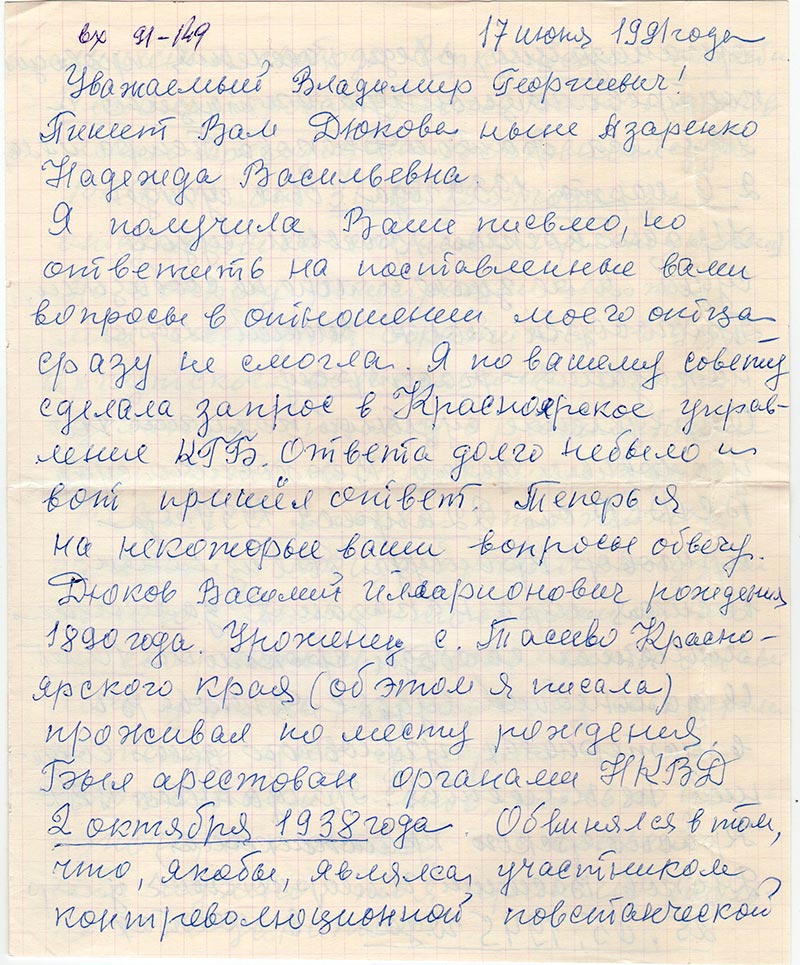 вх 91-149
17 июня 1991 года
Уважаемый Владимир Георгиевич!
Пишет Вам Дюкова ныне Азаренко
Надежда Васильевна.
Я получила Ваше письмо, но
ответить на поставленные вами
вопросы в отношении моего отца
сразу не смогла. Я по вашему совету
сделала запрос в Красноярское управ-
ление КГБ. Ответа долго небыло и
вот пришёл ответ. Теперь я
на некоторые ваши вопросы обвечу.
Дюков Василий Илларионович рождения
1890 года. Уроженец с. Тасеево Красно-
ярского края (об этом я писала)
проживал по месту рождения.
Был арестован органами НКВД
2 октября 1938 года. Обвинялся в том,
что, якобы, являлся участником
контреволюционной повстанческой